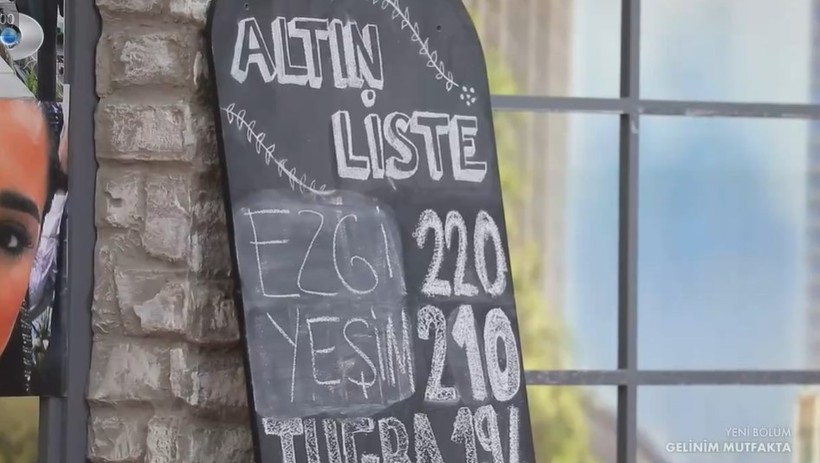 ALTIN
LİSTE
EZGİ 220
YEŞİM 210
TUĞBA
YENİ BÖLÜM
GELİNİM MUTFAKTA